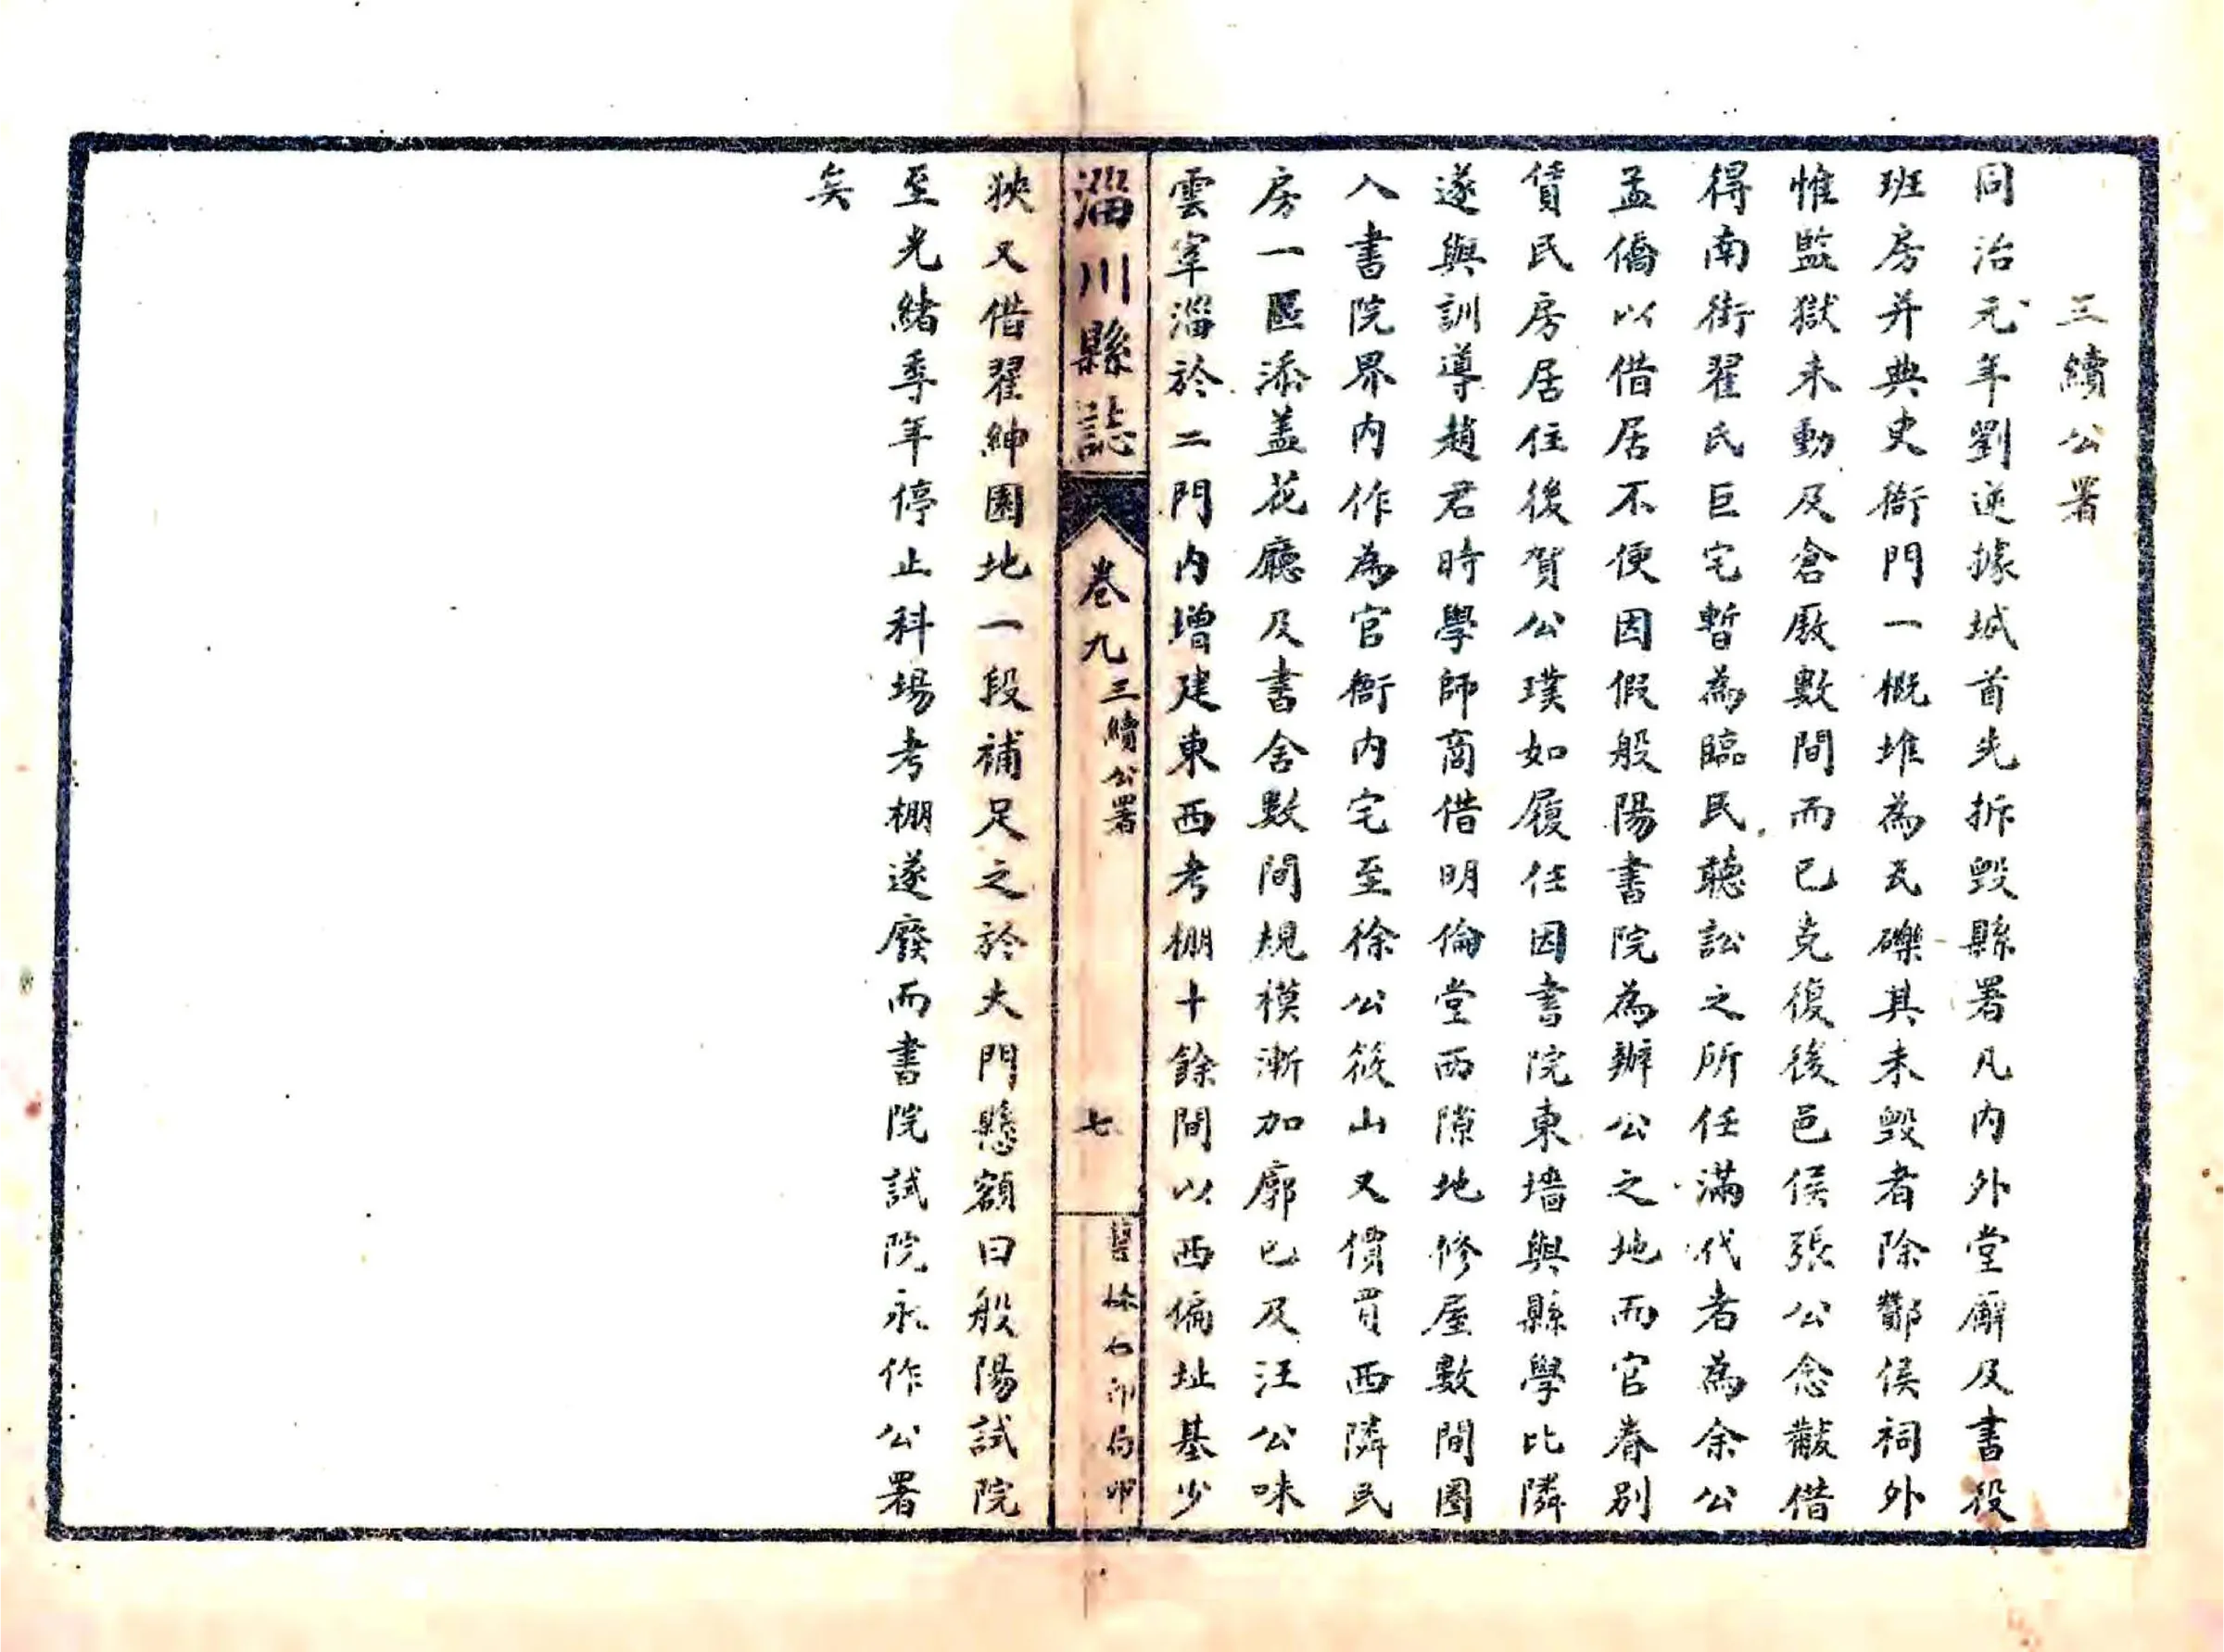 三續公署
同治元年劉逆據城首先拆毀縣署凡内外堂廨及書役
班房并典史衙門一概堆為瓦礫其未毀者除酇侯祠外
惟監獄未動及倉廒數間而已克復後邑侯張公念黻借
得南街翟氏巨宅暫為臨民聽訟之所任滿代者為余公
孟僑以借居不便因假般陽書院為辦公之地而官眷别
賃民房居住後賀公璞如履任因書院東墻與縣學比隣
遂與訓導趙君時學師商借明倫堂西隙地修屋數間圈
入書院界内作為官衙内宅至徐公筱山又價買西隣民
房一區添盖花廳及書舍數間規模漸加廓已及汪公味
雲宰淄於二門内增建東西考棚十餘間以西偏址基少
淄川縣誌
卷九
三續公署
七
林石印局印
狹又借翟紳園地一段補足之於大門懸額曰般陽試院
至光緒季年停止科場考棚遂廢而書院試院永作公署
矣